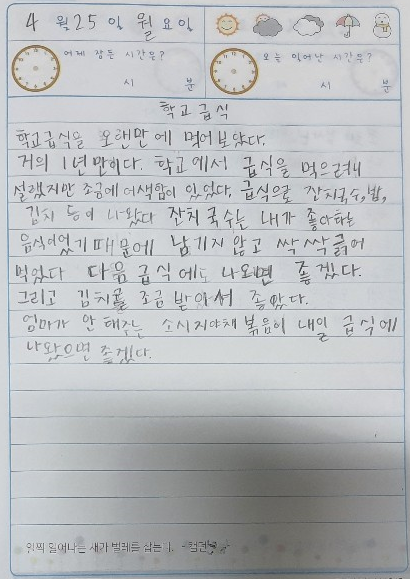 4 월 25 일 월 요일
어제 잠든 시간은?
시 분
오늘 일어난 시간은?
시 분
학교 급식
학교급식을 오랜만에 먹어 보았다.
거의 1년만이다. 학교에서 급식을 먹으려니
설렜지만 조금에 어색함이 있었다. 급식으로 잔치국수, 밥,
김치 등이 나왔다 잔치국수는 내가 좋아하는
음식이었기 때문에 남기지 않고 싹싹 긁어
먹었다 다음 급식에도 나오면 좋겠다.
그리고 김치를 조금 받아서 좋았다.
엄마가 안 해주는 소시지야채 볶음이 내일 급식에
나왔으면 좋겠다.
일찍 일어나는 새가 벌레를 잡는다.